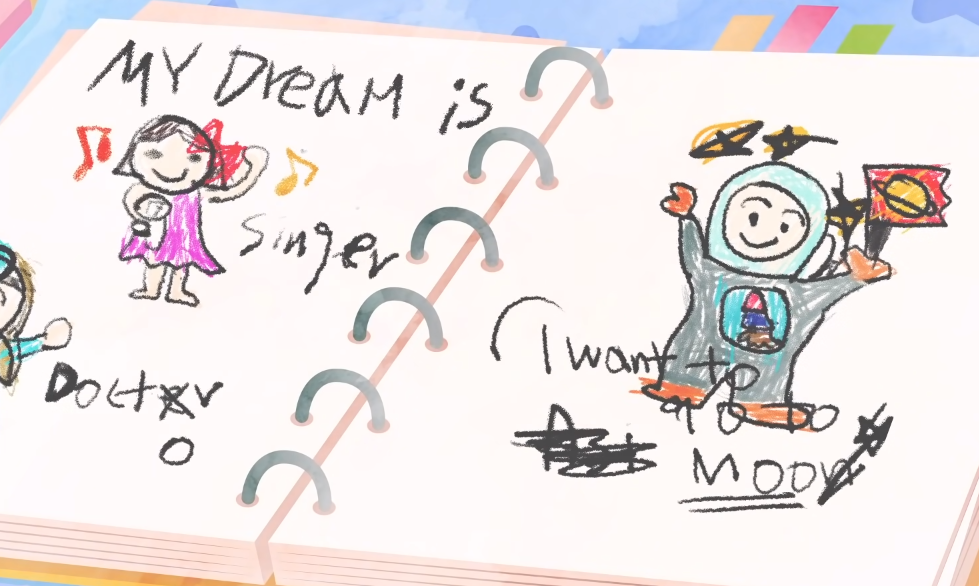 MY Dream is
Singer
Doctor
o
I want to
go to
Moon